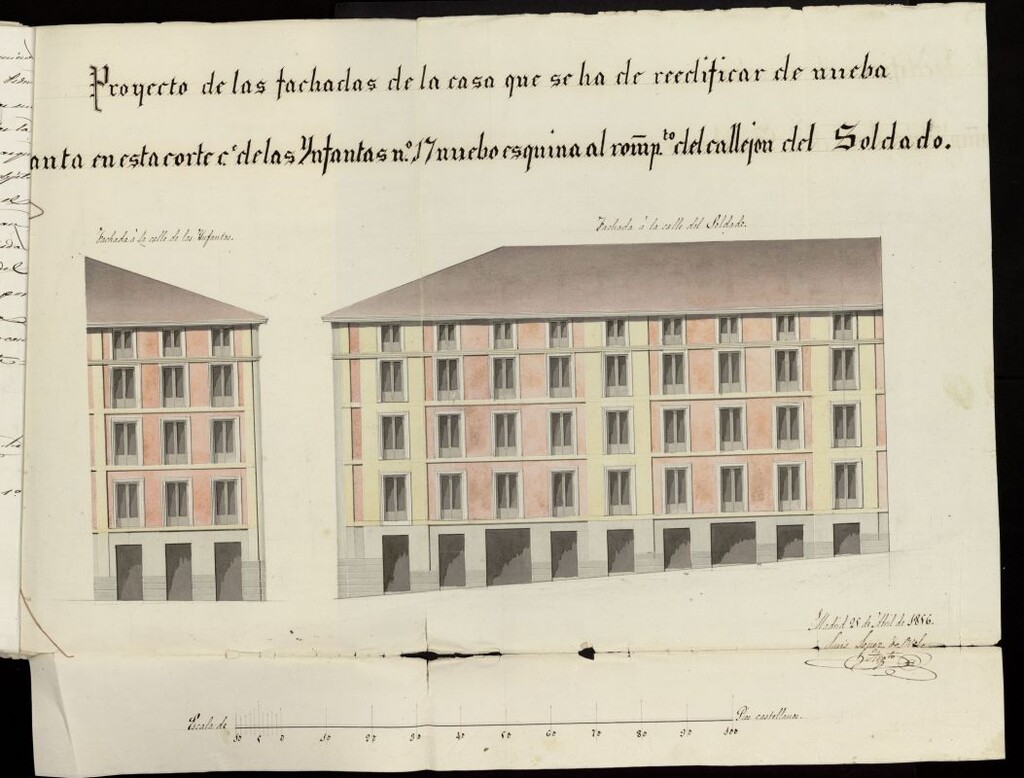 Proyecto de las fachadas de la casa que se ha de reedificar de nueba
anta en esta corte c.e de las Ynfantas n.o 17 nuebo esquina al romp.to del callejon del Soldado.
Fachada á la calle de las Ynfantas.
Fachada á la calle del Soldado.
Madrid 25 de Abril de 1856.
Luis Lopez de
Escala de
10 5 0 10 20 30 40 50 60 70 80 90 100
Pies castellanos.